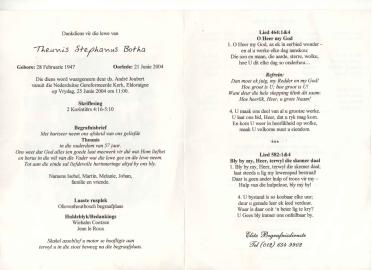 Dankdiens vir die lewe van
Theunis Stephanus Botha
Gebore: 28 Februarie 1947 Oorlede: 21 Junie 2004
Die diens word waargeneem deur ds. André Joubert
vanuit die Nederduitse Gereformeerde Kerk, Eldoraigne
op Vrydag, 25 Junie 2004 om 11:00.
Skriflesing
2 Korintiërs 4:16-5:10
Begrafnisbrief
Met hartseer neem ons afskeid van ons geliefde
Theunis
in die ouderdom van 57 jaar.
Namens Isobel, Martin, Melanie, Johan,
familie en vriende.
Laaste rusplek
Olievenhoutbosch begraafplaas
Huldeblyk/Bedankings
Wiehahn Coetzee
Jean le Roux
Skakel asseblief u motor se hoofligte aan
terwyl u in die stoet beweeg na die begraafplaas.
Lied 464:1&4
O Heer my God
1. O Heer my God, as ek in eerbied wonder -
en al u werke elke dag aanskou:
Die son en maan, die aarde, sterre, wolke,
hoe U dit elke dag so onderhou...
Refrein:
Dan moet ek juig, my Redder en my God!
Hoe groot is U; hoe groot is U!
Want deur die hele skepping klink dit saam:
Hoe heerlik, Heer, u grote Naam!
4. U maak ons deel van al u grootse werke.
U laat ons bid, Heer, dat u ryk mag kom.
En kom U weer in heerlikheid op wolke,
maak U volkome nuut u eiendom.
***
Lied 582:1&4
Bly by my, Heer, terwyl die skemer daal
1. Bly by my, Heer, terwyl die skemer daal,
laat steeds u lig my lewenspad bestraal!
Daar is geen ander hulp of troos vir my -
Hulp van die hulpelose, bly my by!
4. U bystand is so kosbaar elke uur;
deur u genade leer ek stand hou
Waar is daar ooit 'n beter lig te kry?
U Gees bly immers ons onfeilbaar by.
Elite Begrafnisdienste
Tel (012) 654 9902